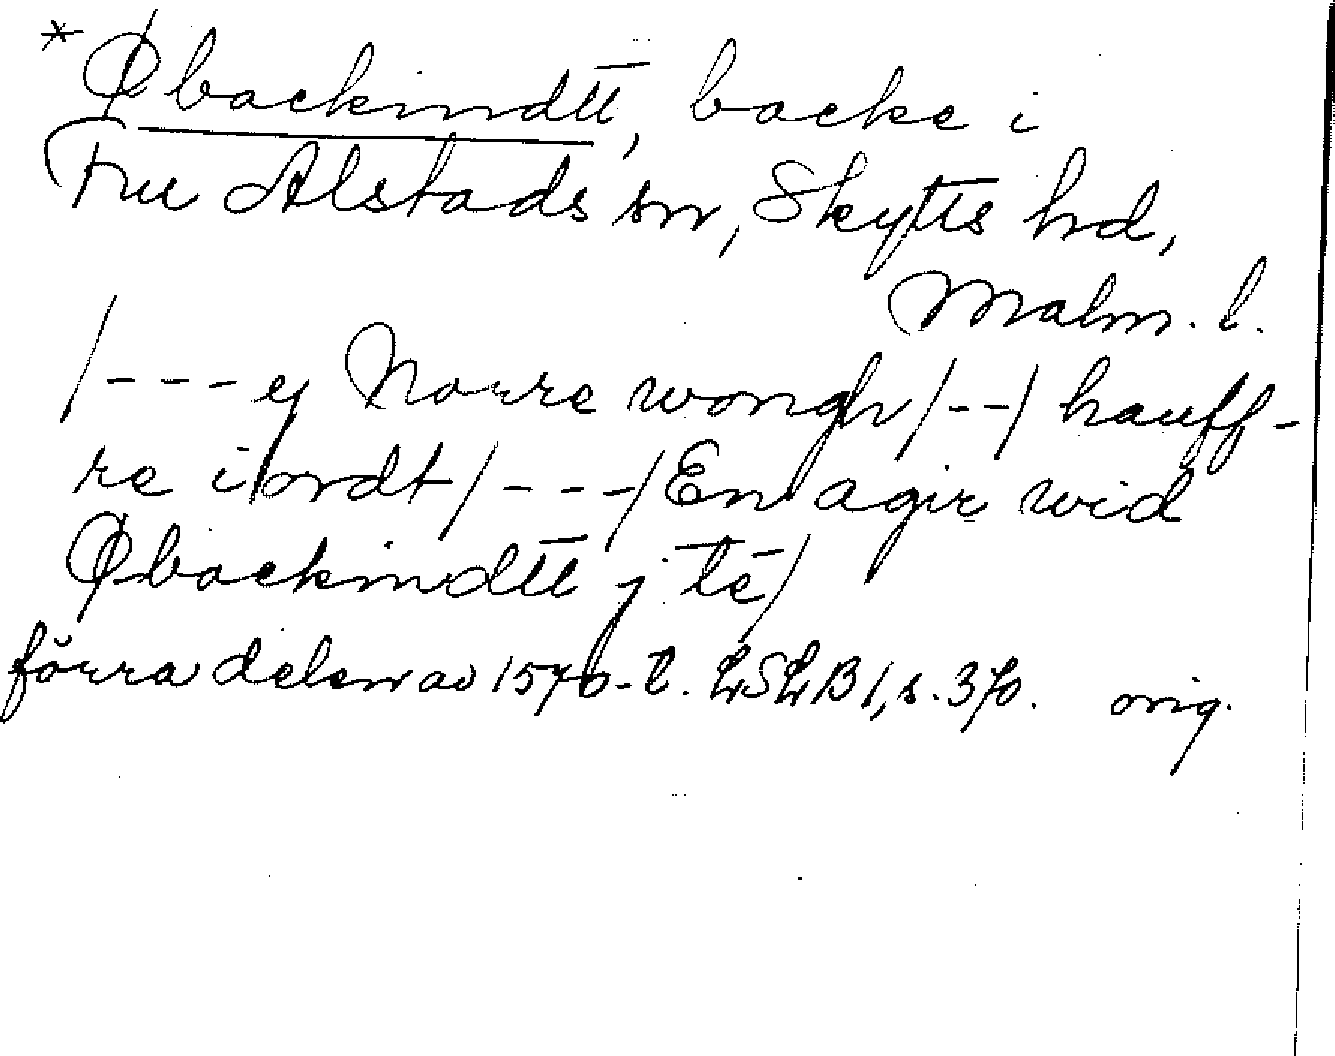 * Øbackindtt, backe i
Fru Alstads sn, Skytts hd,
Malm. l.
/---ej Norre wongh/--/hauff-
re i ordt/---/En agir wid
Øbackindtt j té/
förra delen av 1570-t. LSLB 1, s. 370. orig.